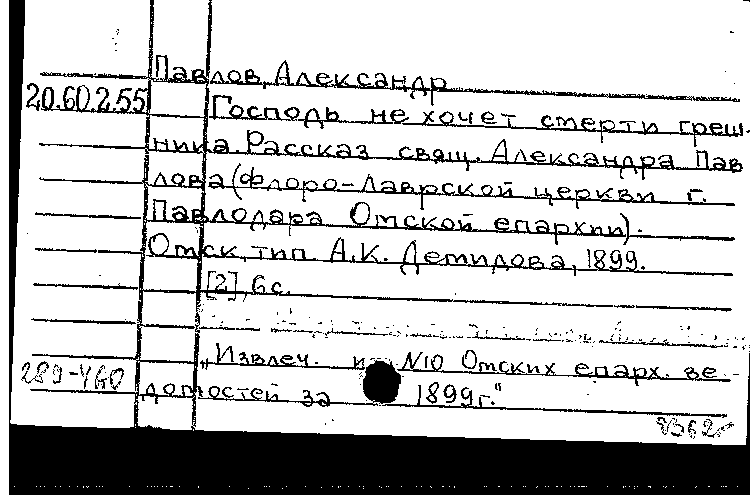 Павлов, Александр
20.60.2.55 Господь не хочет смерти греш-
ника. Рассказ свящ. Александра Пав
лова (Флоро-Лаврской церкви г.
Павлодара Омской епархии).
Омск, тип. А.К. Демидова, 1899.
[2], 6 с.
„Извлеч. из №10 Омских епарх. ве-
домостей за 1899 г."